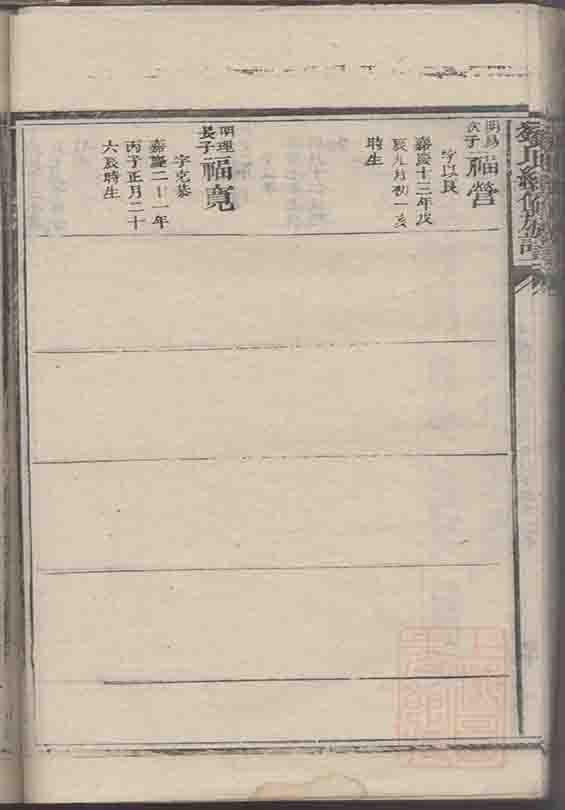 明易次子福營
字以良
嘉慶十三年戊
辰九月初一亥
時生
明理長子福寬
字克恭
嘉慶二十一年
丙子正月二十
六辰時生